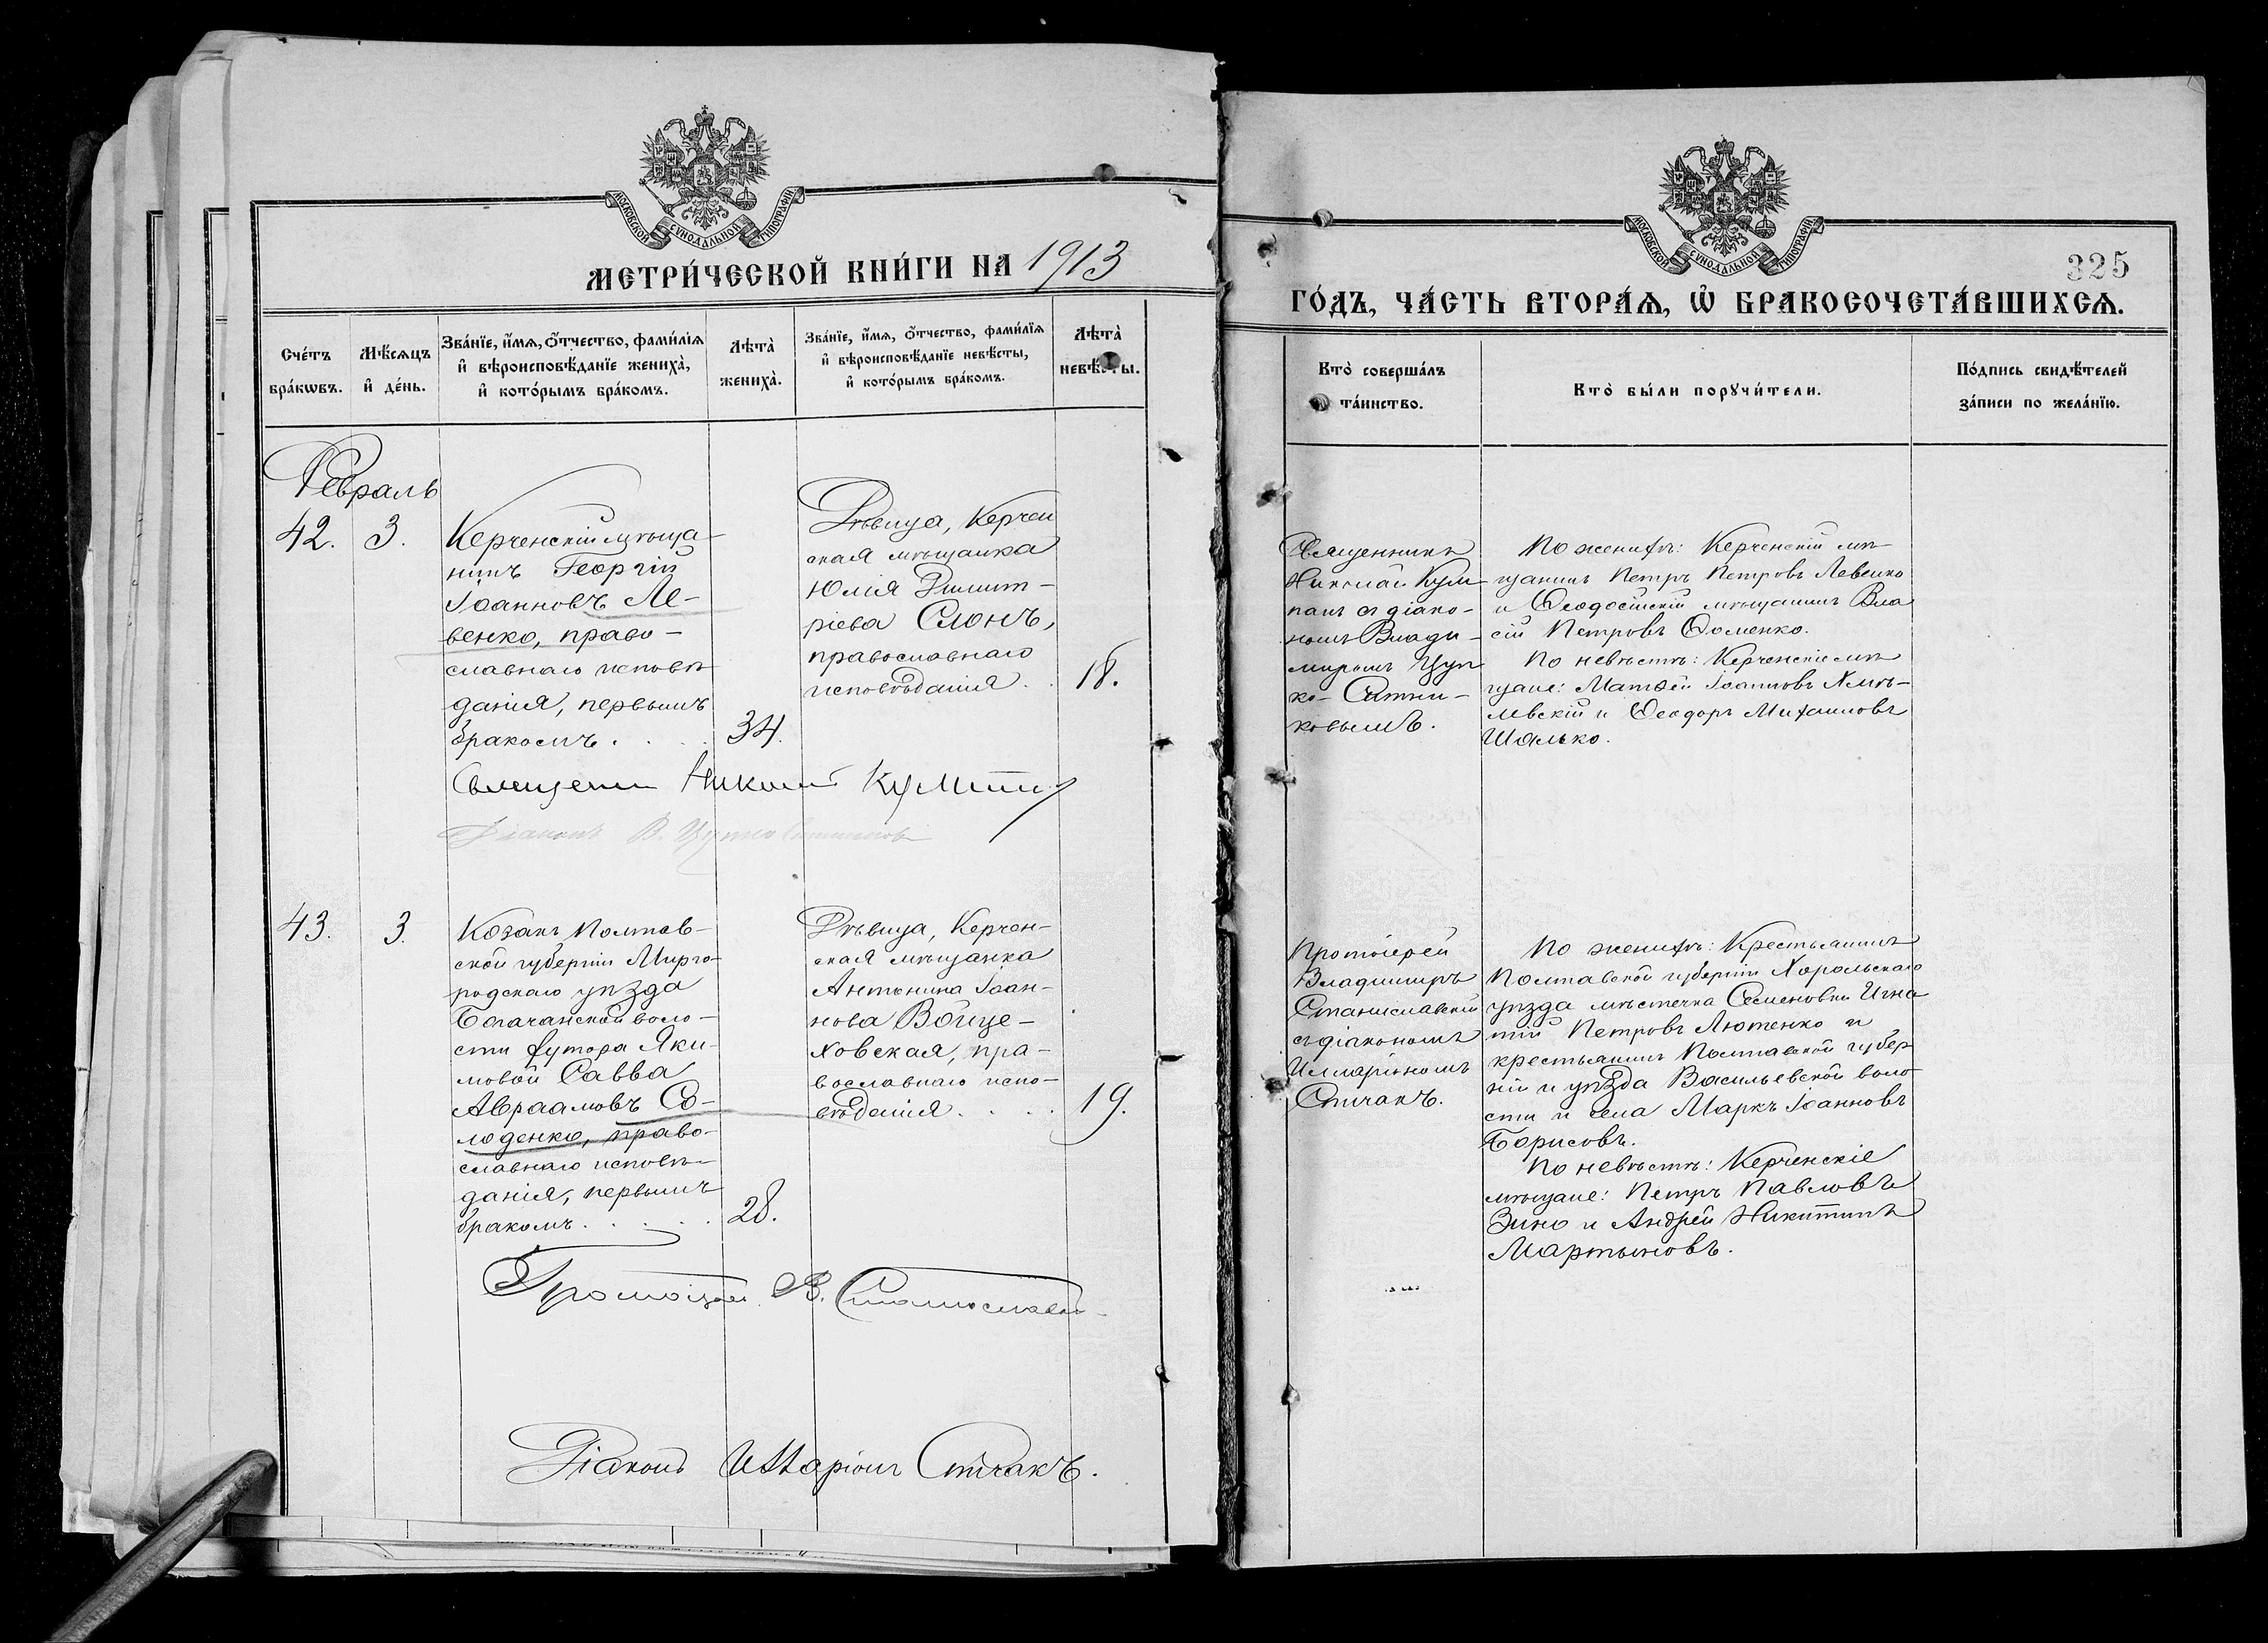 МОСКОВСКОЙ СУНОДАЛЬНОЙ ТИПОГРАФИ
МЕТРИ́ЧЕСКОЙ КНИ́ГИ НА 1913
Сче́тъ бра́кѡвъ.
Мѣ́сѧцъ и҆ де́нь.
Зва́нїе, и҆́мѧ, ѻ҆́тчество, фами́лїѧ
и҆ вѣроисповѣ́данїе жениха̀,
и҆ кото́рымъ бра́комъ.
Лѣта̀ жениха̀.
Зва́нїе, и҆́мѧ, ѻ҆́тчество, фами́лїѧ
и҆ вѣроисповѣ́данїе невѣ́сты,
и҆ кото́рымъ бра́комъ.
Лѣта̀
Февраль
42. 3.
Керченскій мѣща-
нинъ Георгій
Іоанновъ Ле-
венко, право-
славнаго исповѣ
данія, первымъ
бракомъ . . . 34.
Дѣвица, Керчен
ская мѣщанка
Юлія Димит-
ріева Слонъ,
православнаго
исповѣданія . . 18.
Николай
Діаконъ В.
43. 3.
Козакъ Полтав-
ской губерніи Мирго-
родскаго уѣзда
Богачанской воло-
сти хутора Яки-
мовой Савва
Авраамовъ Со-
лоденко, право-
славнаго исповѣ-
данія, первымъ
бракомъ . . . . 28.
Дѣвица, Керчен-
ская мѣщанка
Антонина Іоан-
нова Войце-
ховская, пра-
вославнаго испо-
вѣданія . . . . 19.
Протоіерей В. Станиславскій
Діаконъ Илларіонъ Стичакъ.
МОСКОВСКОЙ СУНОДАЛЬНОЙ ТИПОГРАФИ
325
ГО́ДЪ, ЧА́СТЬ ВТОРА́Ѧ, Ѡ҆ БРАКОСОЧЕТА́ВШИХСѦ.
Кто̀ соверша́лъ
та́инство.
Кто̀ бы́ли порꙋчи́тели.
По́дпись свидѣ́телей
за́писи по жела́нїю.
Священникъ
Николай Кум-
панъ съ діако-
номъ Влади-
миромъ Цуп
ко-Ситни-
ковымъ.
По женихѣ: Керченскій мѣ-
щанинъ Петръ Петровъ Левенко
и Ѳеодосійскій мѣщанинъ Вла
сій Петровъ Ѳоменко.
По невѣстѣ: Керченскіе мѣ
щане: Матѳей Іоанновъ Хмѣ-
левскій и Ѳеодоръ Михаиловъ
Шалько.
Протоіерей
Владимиръ
Станиславскій
съ діакономъ
Илларіономъ
Стичакъ.
По женихѣ: Крестьянинъ
Полтавской губерніи Хорольскаго
уѣзда мѣстечка Семеновки Игна
тій Петровъ Лютенко и
крестьянинъ Полтавской губер
ніи и уѣзда Васильевской воло
сти и села Маркъ Іоанновъ
Борисовъ.
По невѣстѣ: Керченскіе
мѣщане: Петръ Павловъ
Зино и Андрей Никитинъ
Мартыновъ.